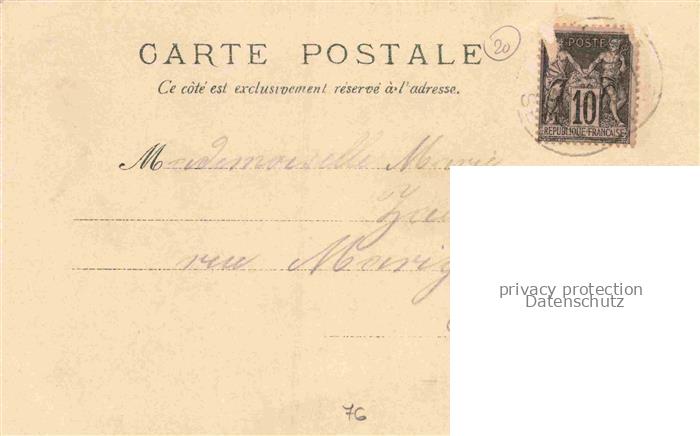 CARTE POSTALE
20
POSTE
10
REPUBLIQUE FRANÇAISE
Ce côté est exclusivement réservé à l'adresse.
Mademoiselle Marie
rue
privacy protection
Datenschutz
76